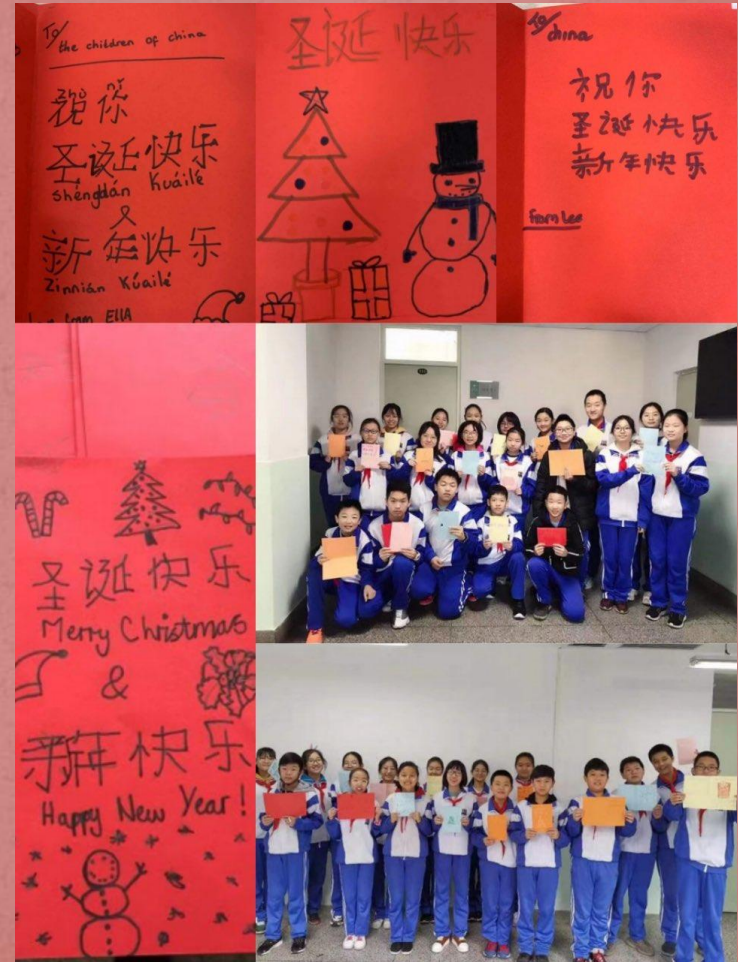 To/
the children of china
zhù nǐ
祝你
圣诞快乐
shéngdán Kuáilé
又
新年快乐
Zinnián Kúailé
from ELLA
圣诞快乐
To/
china
祝你
圣诞快乐
新年快乐
from Lee
圣诞快乐
Merry Christmas
&
新年快乐
Happy New Year!